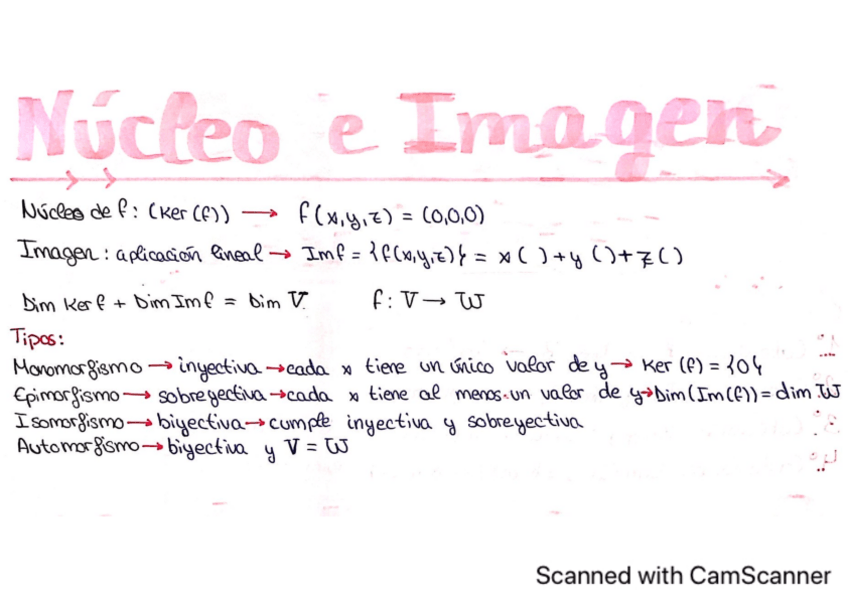 Núcleo e Imagen
Núcleo de f: (Ker (f)) → f(x,y,z) = (0,0,0)
Imagen: aplicación lineal → Imf = {f(x,y,z)} = x( )+y( )+z( )
Dim Ker f + Dim Im f = Dim V. f: V → W
Tipos:
Monomorfismo → inyectiva → cada x tiene un único valor de y → Ker (f) = {0}
Epimorfismo → sobreyectiva → cada x tiene al menos un valor de y → Dim(Im(f)) = dim W
Isomorfismo → biyectiva → cumple inyectiva y sobreyectiva
Automorfismo → biyectiva y V = W
Scanned with CamScanner